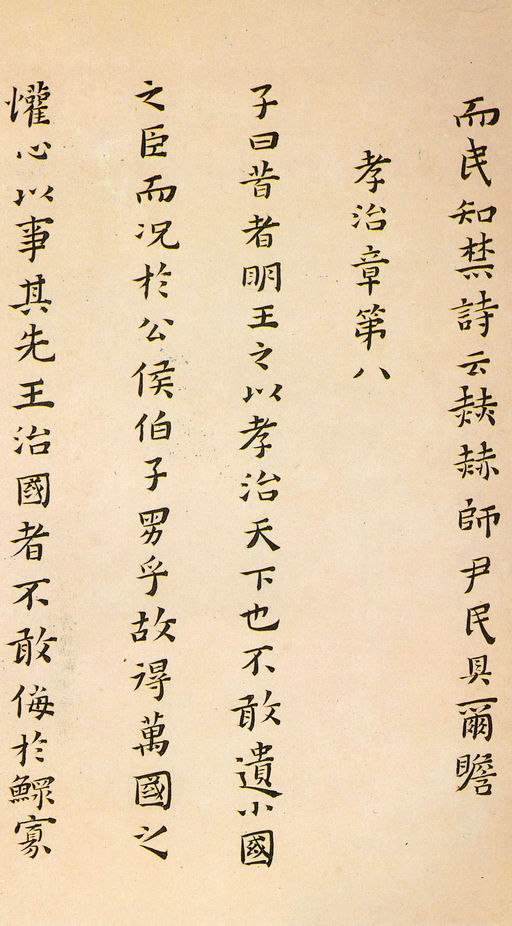 而民知禁詩云赫赫師尹民具爾瞻
孝治章第八
子曰昔者明王之以孝治天下也不敢遺小國
之臣而況於公侯伯子男乎故得萬國之
懽心以事其先王治國者不敢侮於鰥寡